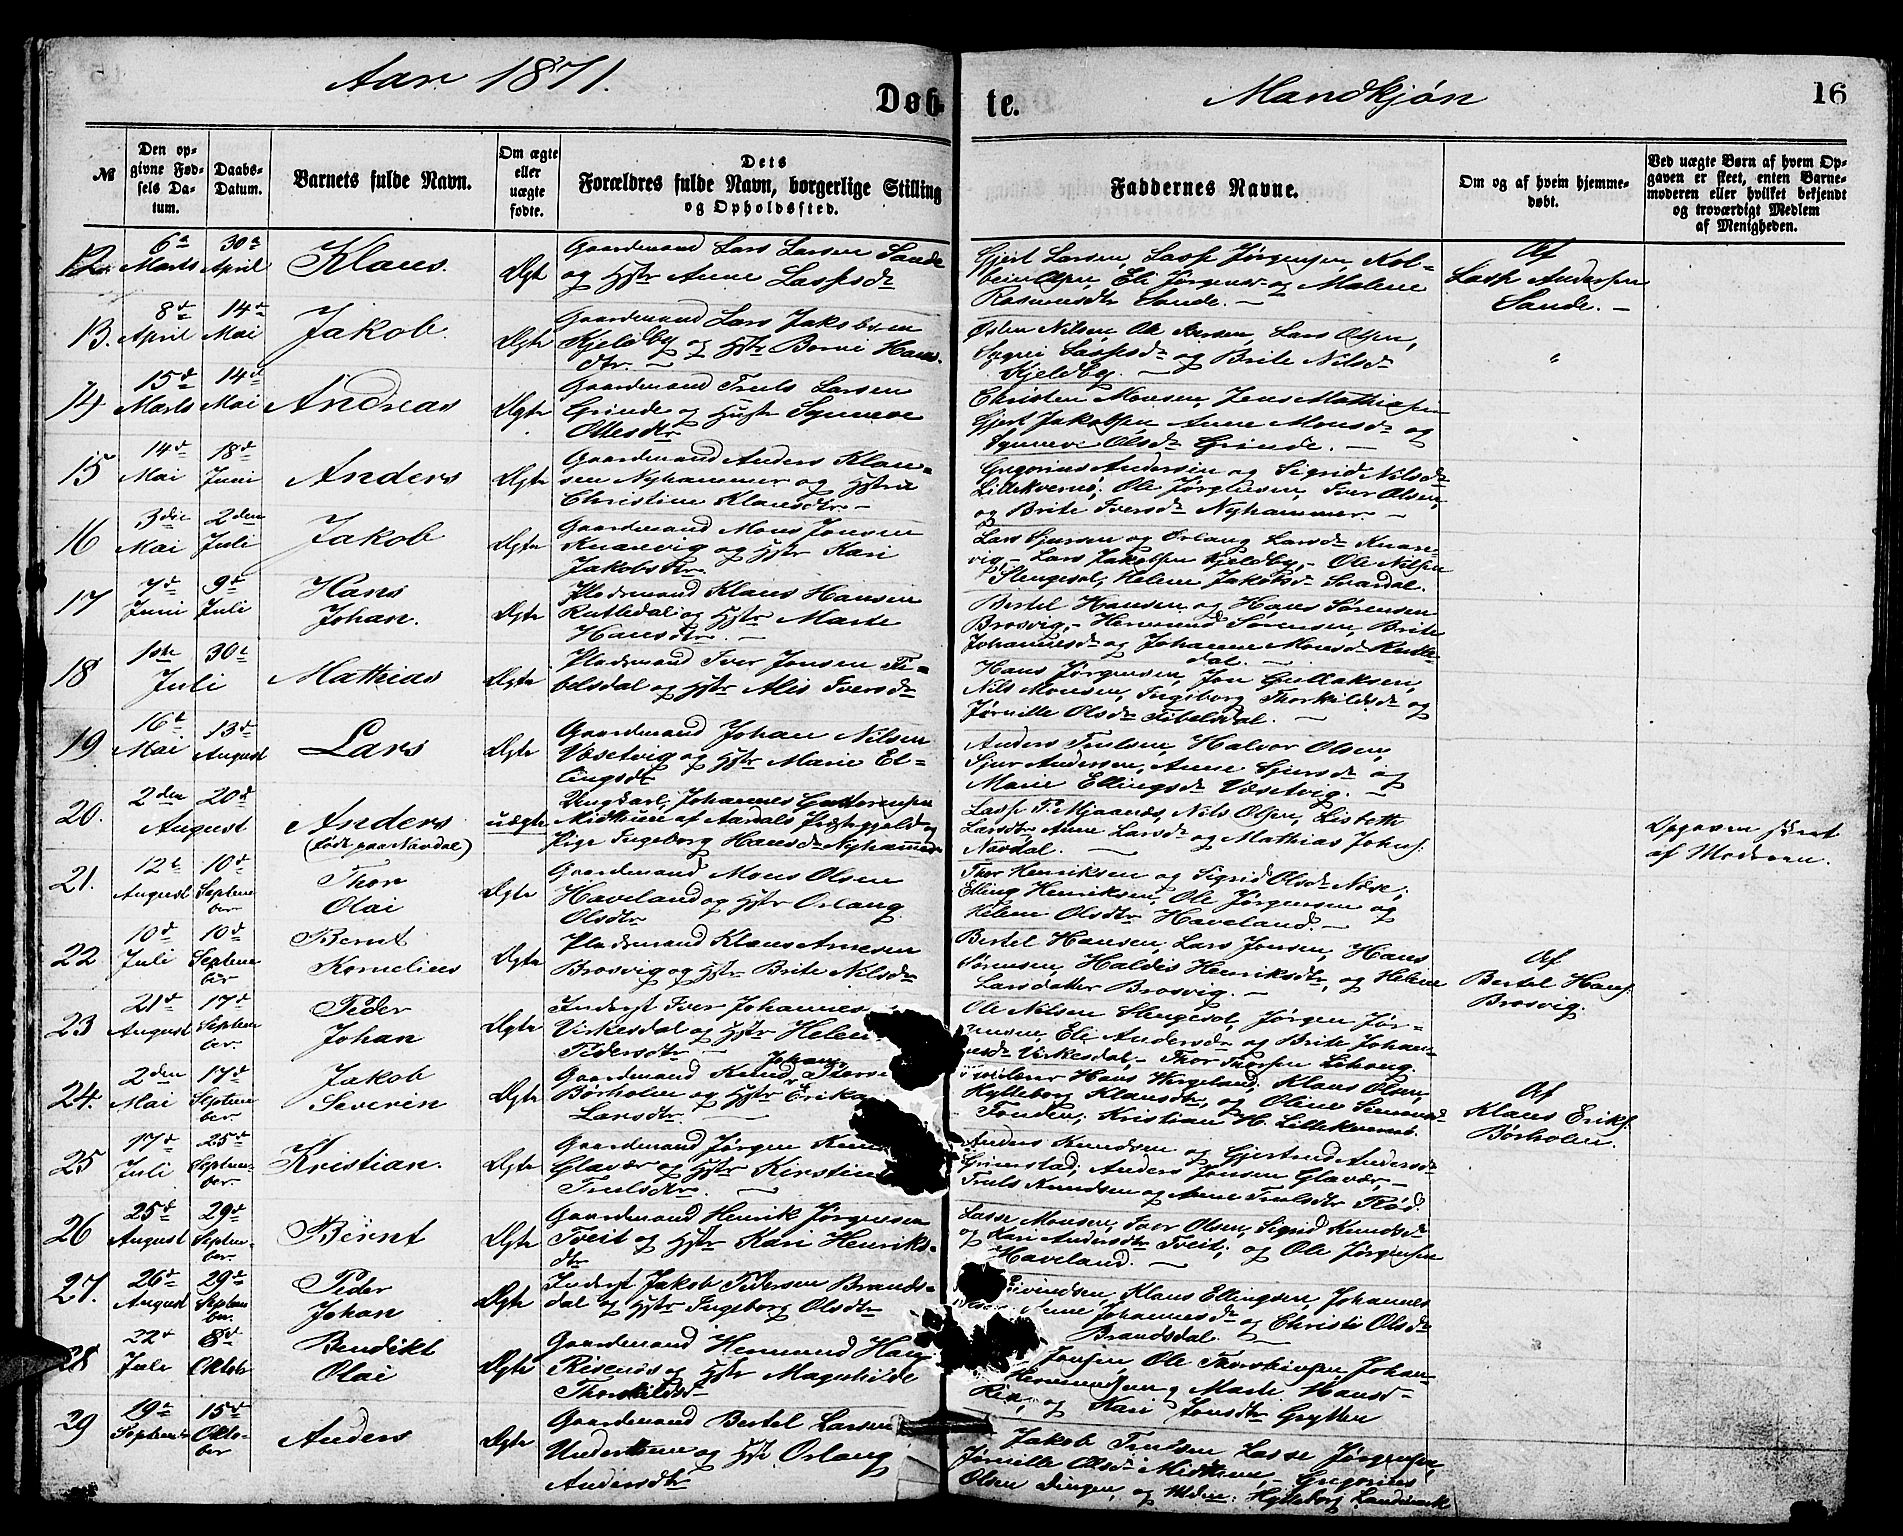 Aar 1871.
Døb-te.
Mandkjøn
16
№
Den opgivne Fødsels Datum.
Daabs-Datum.
Barnets fulde Navn.
Om ægte eller uægte fødte.
Dets Forældres fulde Navn, borgerlige Stilling og Opholdssted.
Faddernes Navne.
Om og af hvem hjemmedøbt.
Ved uægte Børn af hvem Opgaven er skeet, enten Barnemoderen eller hvilket bekjendt og troværdigt Medlem af Menigheden.
12. 6te Marts 30te April Klaus. Ægte
Gaardmand Lars Larsen Sande
og Hstr Anne Lassesdr
Gjert Larsen, Lasse Jørgensen, Kol-
bein Olsen, Eli Jørgensdr og Malene
Rasmusdtr Sande. —
Af
Lasse Andersen
Sande. —
13. 8de April 14de Mai Jakob. Ægte
Gaardmand Lars Jakobsen
Kjeldby og Hstr Berni Hans-
dtr. —
Østen Nilsen, Ole Iversen, Lars Olsen,
Sygni Lassesdr og Brite Nilsdr
Kjeldby. —
"
14 15de Marts 14de Mai Andreas Ægte
Gaardmand Truls Larsen
Grinde og Hustr Synneve
Ottesdtr
Christen Monsen, Jens Mathiasen
Gjert Jakobsen, Anne Monsdr og
Synneve Olsdr Grinde. —
15 14de Mai 18de Juni Anders Ægte
Gaardmand Anders Klau-
sen Nyhammer og Hstru
Christine Klausdtr —
Gregorius Andersen og Sigrid Nilsdr
Lillekvernø; Ole Jørgensen, Iver Olsen,
og Brite Iversdr Nyhammer. —
16 3die Mai 2den Juli Jakob Ægte
Gaardmand Mons Jonsen
Knarvig og Hstr Kari
Jakobsdtr.
Lars Sjursen og Orlaug Larsdr Knar-
vig, — Lars Jakobsen Kjeldby, — Ole Nilsen
Slengesol, Helene Jakobsdr
17 7de Juni 9de Juli Hans
Johan. Ægte
Pladsmand Klaus Hansen
Rutledal og Hstr Marte
Hansdtr. —
Bertel Hansen og Hans Sørensen
Brosvig, — Hermund Sørensen, Brite
Johannesdr og Johanne Monsdr Rutle-
dal. —
18 1ste 30te Juli Mathias Ægte
Pladsmand Iver Jonsen Ti-
belsdal og Hstr Alis Iversdr
Hans Jørgensen, Jon Gullaksen,
Nils Monsen, Ingeborg Thorkildsdr og
Jørnille Olsdr Tibelsdal. —
19. 16de Mai 13de August Lars Ægte
Gaardmand Johan Nilsen
Væsetvig og Hstr Marie El-
lingsdtr
Anders Trulsen, Halvor Olsen,
Sjur Andersen, Anne Sjursdr og
Marie Ellingsdr Væsetvig. —
20. 2den 20de August Anders
(født paa Navdal) uægte
Ungkarl, Johannes Guttormsen
Midtun af Aardals Præstegjeld og
Pige Ingeborg Hansdr Nyhammer
Lasse T. Mjaanæs, Nils Olsen, Lisbeth
Larsdtr, Anne Larsdr og Mathias Johns.
Navdal. —
Opgaven skeet
af Moderen.
21. 12te August 10de September Thor
Olai Ægte
Gaardmand Mons Olsen
Haveland og Hstr Orlaug
Olsdtr
Thor Henriksen og Sigrid Olsdr Næse;
Elling Henriksen, Ole Jørgensen og
Helene Olsdtr Haveland. —
22 10de Juli 10de September Bernt
Kornelius Ægte
Pladsmand Klaus Arnesen
Brosvig og Hstr Brite Nilsdr
Bertel Hansen, Lars Jonsen, Hans
Sørensen, Haldis Henriksdtr, og Helene
Larsdatter Brosvig. —
Af
Bertel Hans.
Brosvig.
23 21de August 17de September Peder
Johan Ægte
Inderst Iver Johannes
Virkesdal og Hstr Helen
Pedersdtr —
Ole Nilsen Slengesol, Jørgen Jør-
gensen, Eli Andersdr og Brite Johan-
nesdr Virkesdal, — Thor Thorsen
24. 2den Mai 17de September Jakob
Severin Ægte
Johan
Gaardmand Knud Ivers
Børholm og Hstr Erika
Larsdtr. —
Hans Wergeland; Klaus Olsen,
Hylleborg Klausdtr, og Oline
Kristian H. Lillekvernø.
Af
Klaus Eriks.
Børholm.
25 17de Juli 25de September Kristian. Ægte
Gaardmand Jørgen
Glavær og Hstr Kirstine
Trulsdtr. —
Anders Knudsen og Gjertrud Andersdr
Grimstad; Anders Jonsen Glavær, —
Truls Knudsen og Anne Trulsdtr Rød
26 25de August 29de September Bernt Ægte
Gaardmand Henrik Jørgensen
Tveit og Hstr Kari Henriks-
dtr
Lasse Monsen, Iver Olsen, Sigrid Knudsdr
og Kari Andersdtr Tveit; og Ole Jørgensen
Haveland. —
27. 26de August 29de September Peder
Johan Ægte
Inderst Jakob Pedersen Brands-
dal og Hstr Ingeborg Olsdtr
Eivindsen, Klaus Ellingsen, Johannes
Anne Johannesdr og Christi Olsdr
Brandsdal. —
28 22de Juli 8de Oktober Bendikt
Olai Ægte
Gaardmand Hermund
Risnes og Hstr Magnhilde
Thorkildsdr
Jonsen, Ole Thorkildsen, Johan
Hermundsen og Marte Hansd-
og Kari Jonsdtr Grytten
29 19de September 15de Oktober Anders Ægte
Gaardmand Bertel Larsen
Undertun og Hstr Orlaug
Andersdtr
Jakob Trulsen, Lasse Jørgensen,
Jørnille Olsdr Midttun, — Gregorius
Olsen Dingen, og Hylleborg